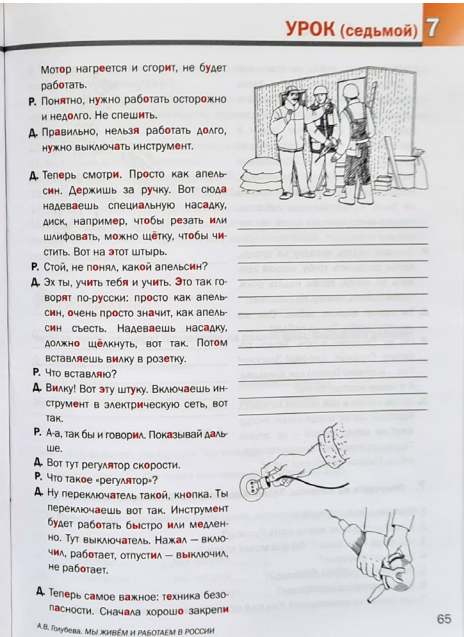 УРОК (седьмой) 7
Мотор нагреется и сгорит, не будет
работать.
Р. Понятно, нужно работать осторожно
и недолго. Не спешить.
Д. Правильно, нельзя работать долго,
нужно выключать инструмент.
Д. Теперь смотри. Просто как апель-
син. Держишь за ручку. Вот сюда
надеваешь специальную насадку,
диск, например, чтобы резать или
шлифовать, можно щётку, чтобы чи-
стить. Вот на этот штырь.
Р. Стой, не понял, какой апельсин?
Д. Эх ты, учить тебя и учить. Это так го-
ворят по-русски: просто как апель-
син, очень просто значит, как апель-
син съесть. Надеваешь насадку,
должно щёлкнуть, вот так. Потом
вставляешь вилку в розетку.
Р. Что вставляю?
Д. Вилку! Вот эту штуку. Включаешь ин-
струмент в электрическую сеть, вот
так.
Р. А-а, так бы и говорил. Показывай даль-
ше.
Д. Вот тут регулятор скорости.
Р. Что такое «регулятор»?
Д. Ну переключатель такой, кнопка. Ты
переключаешь вот так. Инструмент
будет работать быстро или медлен-
но. Тут выключатель. Нажал — вклю-
чил, работает, отпустил — выключил,
не работает.
Д. Теперь самое важное: техника безо-
пасности. Сначала хорошо закрепи
65
А.В. Голубева. МЫ ЖИВЁМ И РАБОТАЕМ В РОССИИ